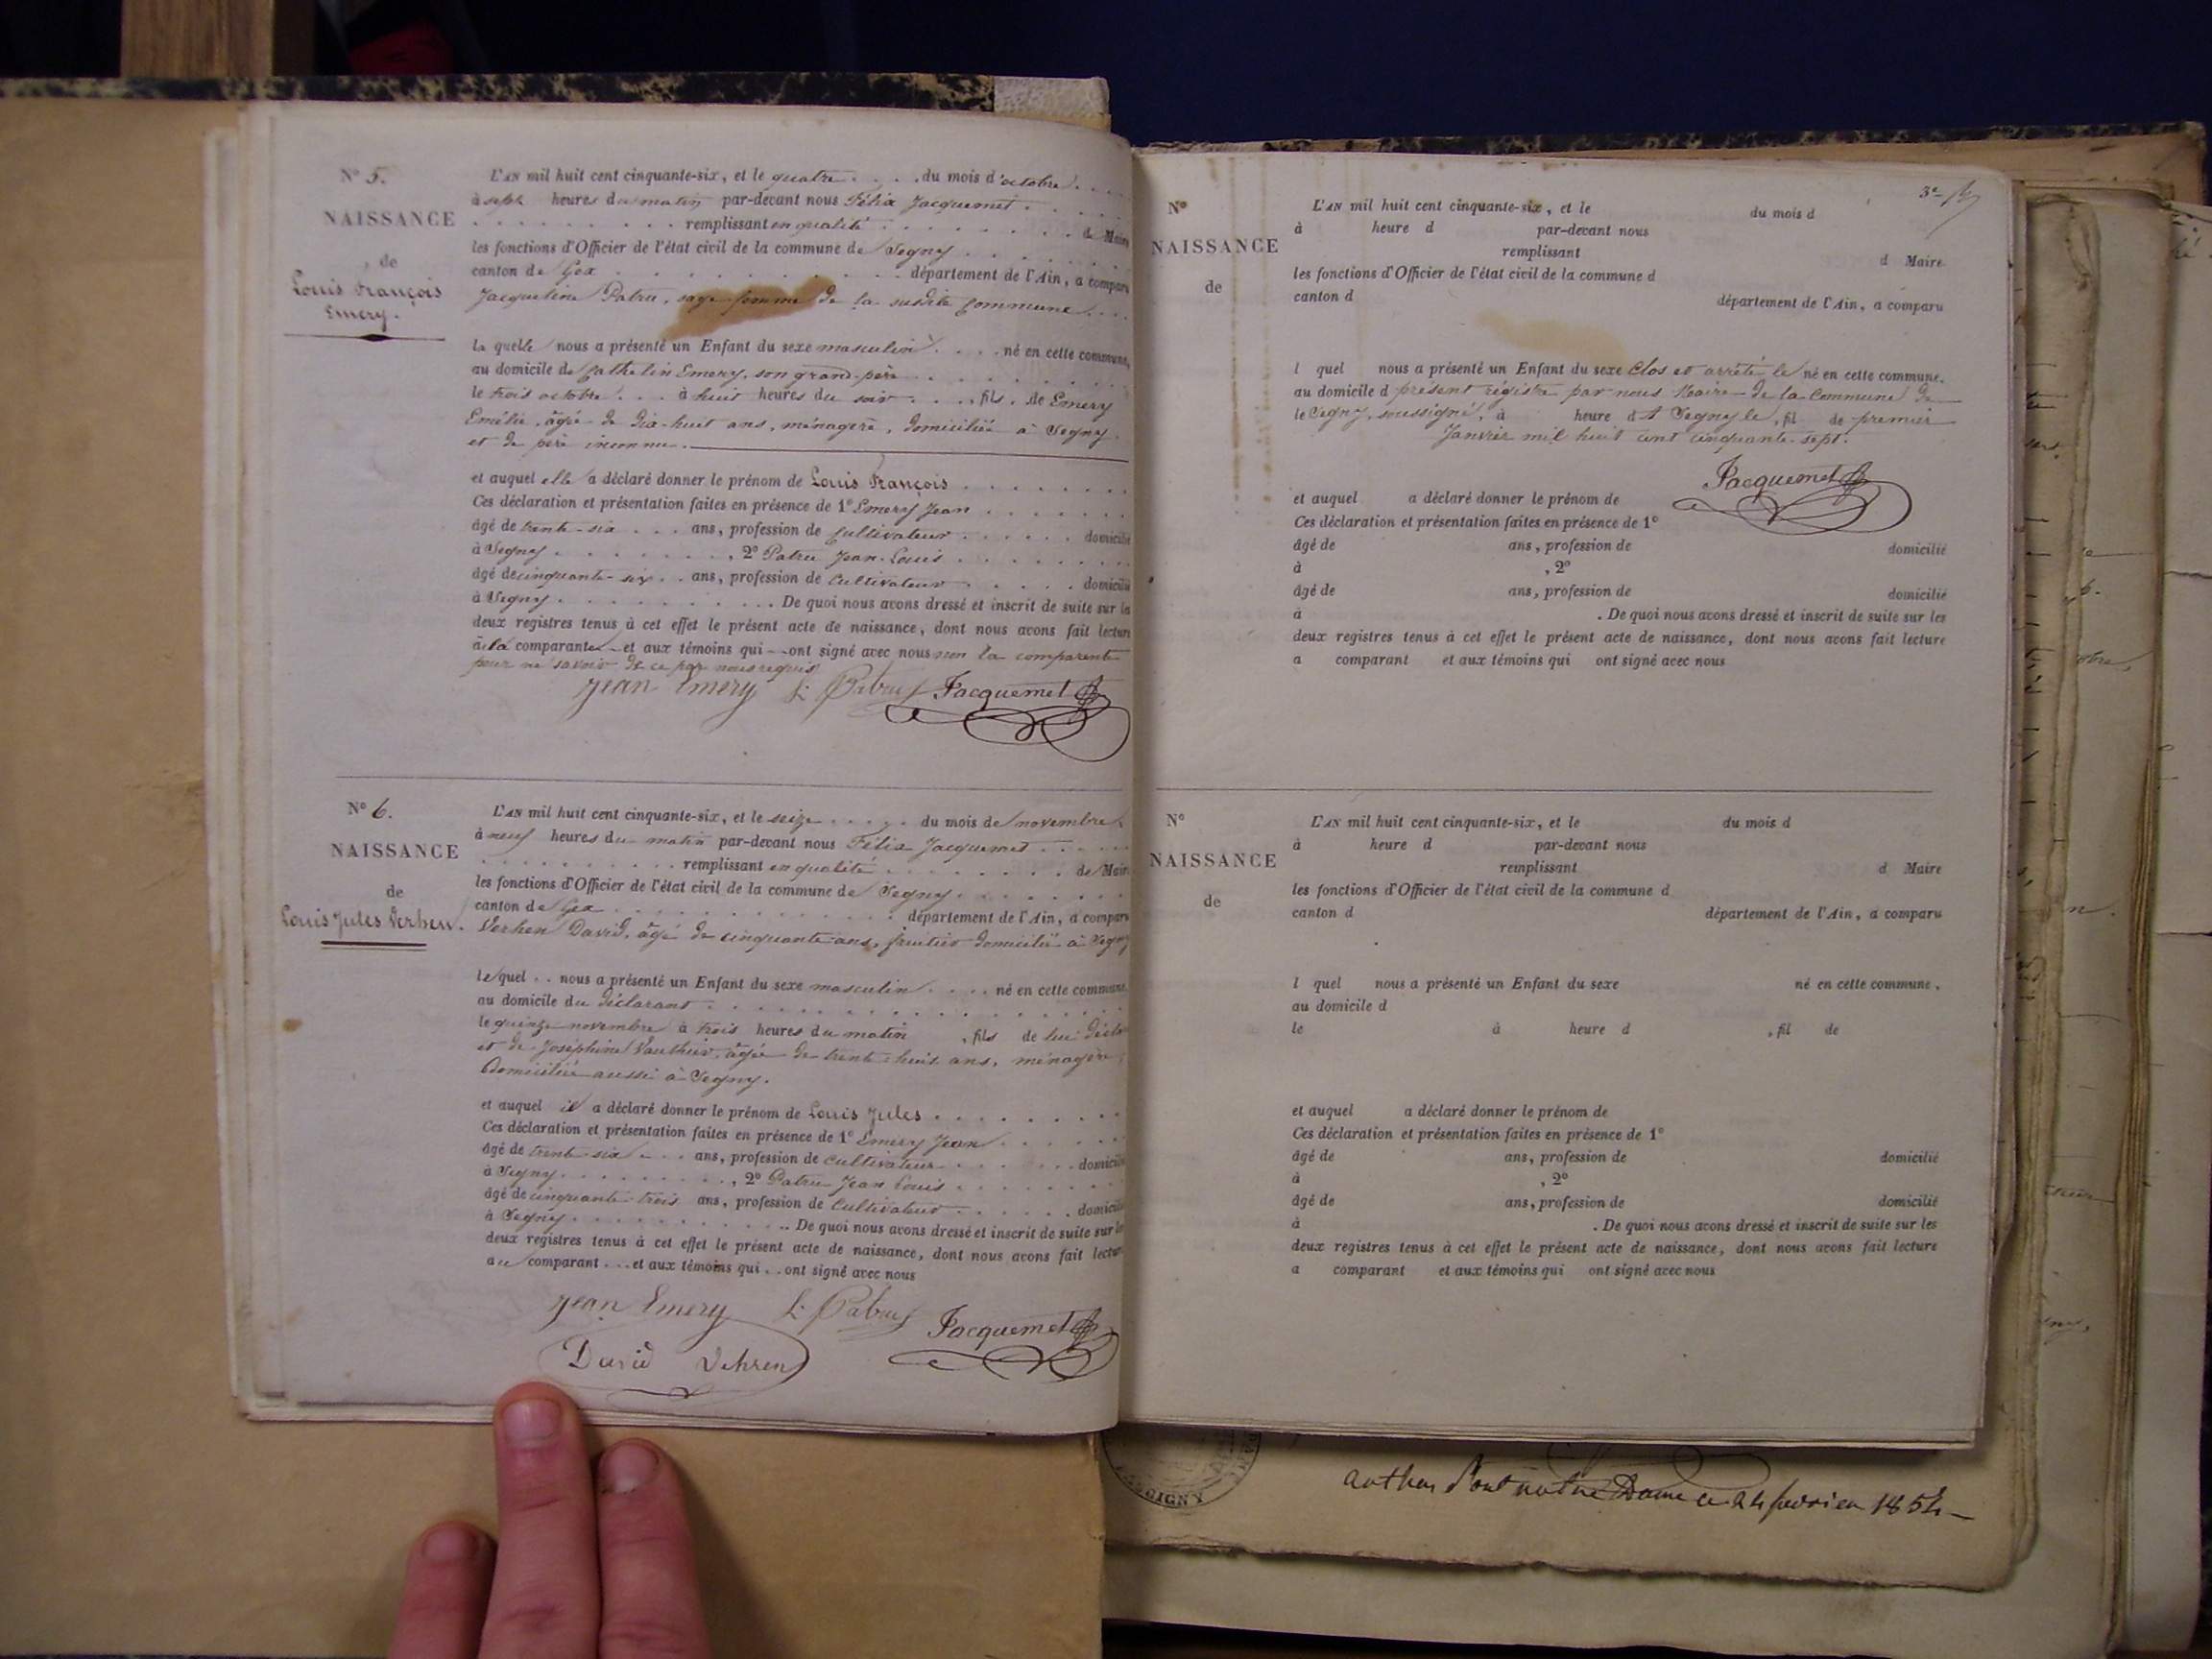 N° 5.
NAISSANCE
de
Louis François
Emery.
L'AN mil huit cent cinquante-six, et le quatre . . . . du mois d'octobre . . . .
à sept heures du matin par-devant nous Félix Jacquemet . . .
. . . . . . . . . remplissant en qualité . . . . . . . . . de Maire
les fonctions d'Officier de l'état civil de la commune de Segny . . . . . .
canton de Gex . . . . . . . . . . . . . département de l'Ain, a comparu
Jacqueline Patru, sage femme de la susdite commune . . .
la quelle nous a présenté un Enfant du sexe masculin . . . . né en cette commune,
au domicile de Cathelin Emery, son grand-père . . . . . . . . .
le trois octobre . . . à huit heures du soir . . . , fils . de Emery
Emélie, âgée de dix-huit ans, ménagère, domiciliée à Segny
et de père inconnu.
et auquel elle a déclaré donner le prénom de Louis François . . . . . . .
Ces déclaration et présentation faites en présence de 1° Emery Jean . . . . . . .
âgé de trente-six . . . ans, profession de cultivateur . . . . . . domicilié
à Segny . . . . . . . . , 2° Patru Jean-Louis . . . . . . . .
âgé de cinquante-six . . ans, profession de cultivateur . . . . . domicilié
à Segny . . . . . . . . . . . De quoi nous avons dressé et inscrit de suite sur les
deux registres tenus à cet effet le présent acte de naissance, dont nous avons fait lecture
à la comparante et aux témoins qui ont signé avec nous non la comparente
pour ne savoir de ce par nous requis
Jean Emery L. Patru Jacquemet
N° 6.
NAISSANCE
de
Louis Jules Verhen.
L'AN mil huit cent cinquante-six, et le seize . . . . . du mois de novembre
à neuf heures du matin par-devant nous Félix Jacquemet . . . . .
. . . . . . . . . . remplissant en qualité . . . . . . . . . de Maire
les fonctions d'Officier de l'état civil de la commune de Segny . . . . . . .
canton de Gex . . . . . . . . . . . . . département de l'Ain, a comparu
Verhen David, âgé de cinquante ans, fruitier domicilié à Segny
le quel . . nous a présenté un Enfant du sexe masculin . . . . né en cette commune
au domicile du déclarant . . . . . . . . . . . . . . . . .
le quinze novembre à trois heures du matin , fils de lui
et de Joséphine Vauthier, âgée de trente-huit ans, ménagère,
domiciliée aussi à Segny.
et auquel il a déclaré donner le prénom de Louis Jules . . . . . . . .
Ces déclaration et présentation faites en présence de 1° Emery Jean . . . . . .
âgé de trente-six . . . ans, profession de cultivateur . . . . . . . domicilié
à Segny . . . . . . . . , 2° Patru Jean Louis . . . . . . . .
âgé de cinquante-trois ans, profession de cultivateur . . . . . . domicilié
à Segny . . . . . . . . . . . De quoi nous avons dressé et inscrit de suite sur les
deux registres tenus à cet effet le présent acte de naissance, dont nous avons fait lecture
au comparant . . . et aux témoins qui . . ont signé avec nous
Jean Emery L. Patru Jacquemet
David Vehren
N°
NAISSANCE
de
L'AN mil huit cent cinquante-six, et le du mois d
à heure d par-devant nous
remplissant d Maire
les fonctions d'Officier de l'état civil de la commune d
canton d département de l'Ain, a comparu
l quel nous a présenté un Enfant du sexe Clos et arrêté le né en cette commune.
au domicile d présent régistre par nous Maire de la commune de
le Segny, soussigné, à heure d A Segny le , fil de premier
Janvier mil huit cent cinquante-sept.
Jacquemet
et auquel a déclaré donner le prénom de
Ces déclaration et présentation faites en présence de 1°
âgé de ans, profession de domicilié
à , 2°
âgé de ans, profession de domicilié
à . De quoi nous avons dressé et inscrit de suite sur les
deux registres tenus à cet effet le présent acte de naissance, dont nous avons fait lecture
a comparant et aux témoins qui ont signé avec nous
N°
NAISSANCE
de
L'AN mil huit cent cinquante-six, et le du mois d
à heure d par-devant nous
remplissant d Maire
les fonctions d'Officier de l'état civil de la commune d
canton d département de l'Ain, a comparu
l quel nous a présenté un Enfant du sexe né en cette commune.
au domicile d
le à heure d , fil de
et auquel a déclaré donner le prénom de
Ces déclaration et présentation faites en présence de 1°
âgé de ans, profession de domicilié
à , 2°
âgé de ans, profession de domicilié
à . De quoi nous avons dressé et inscrit de suite sur les
deux registres tenus à cet effet le présent acte de naissance, dont nous avons fait lecture
a comparant et aux témoins qui ont signé avec nous
Dame ce 24 fevrier 1854